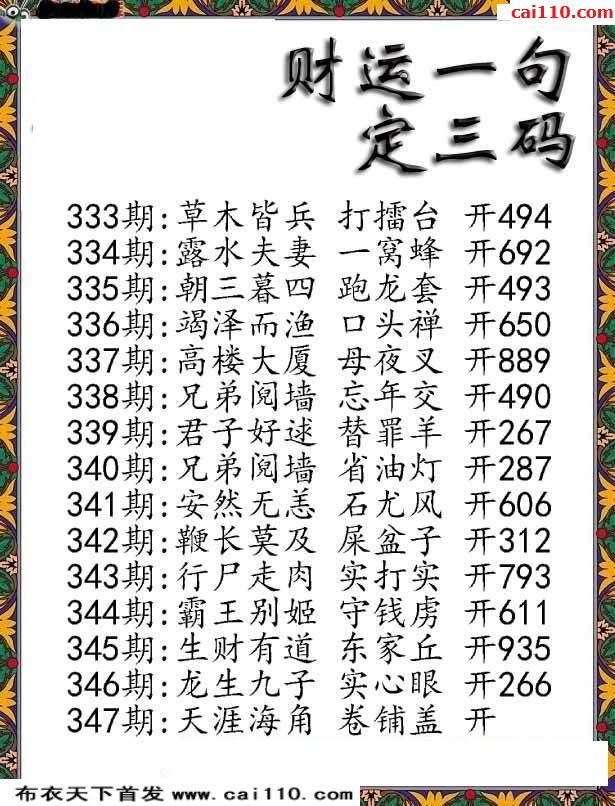 cai110.com
财运一句
定三码
333期:草木皆兵 打擂台 开494
334期:露水夫妻 一窝蜂 开692
335期:朝三暮四 跑龙套 开493
336期:竭泽而渔 口头禅 开650
337期:高楼大厦 母夜叉 开889
338期:兄弟阋墙 忘年交 开490
339期:君子好逑 替罪羊 开267
340期:兄弟阋墙 省油灯 开287
341期:安然无恙 石尤风 开606
342期:鞭长莫及 屎盆子 开312
343期:行尸走肉 实打实 开793
344期:霸王别姬 守钱虏 开611
345期:生财有道 东家丘 开935
346期:龙生九子 实心眼 开266
347期:天涯海角 卷铺盖 开
布衣天下首发 www.cai110.com